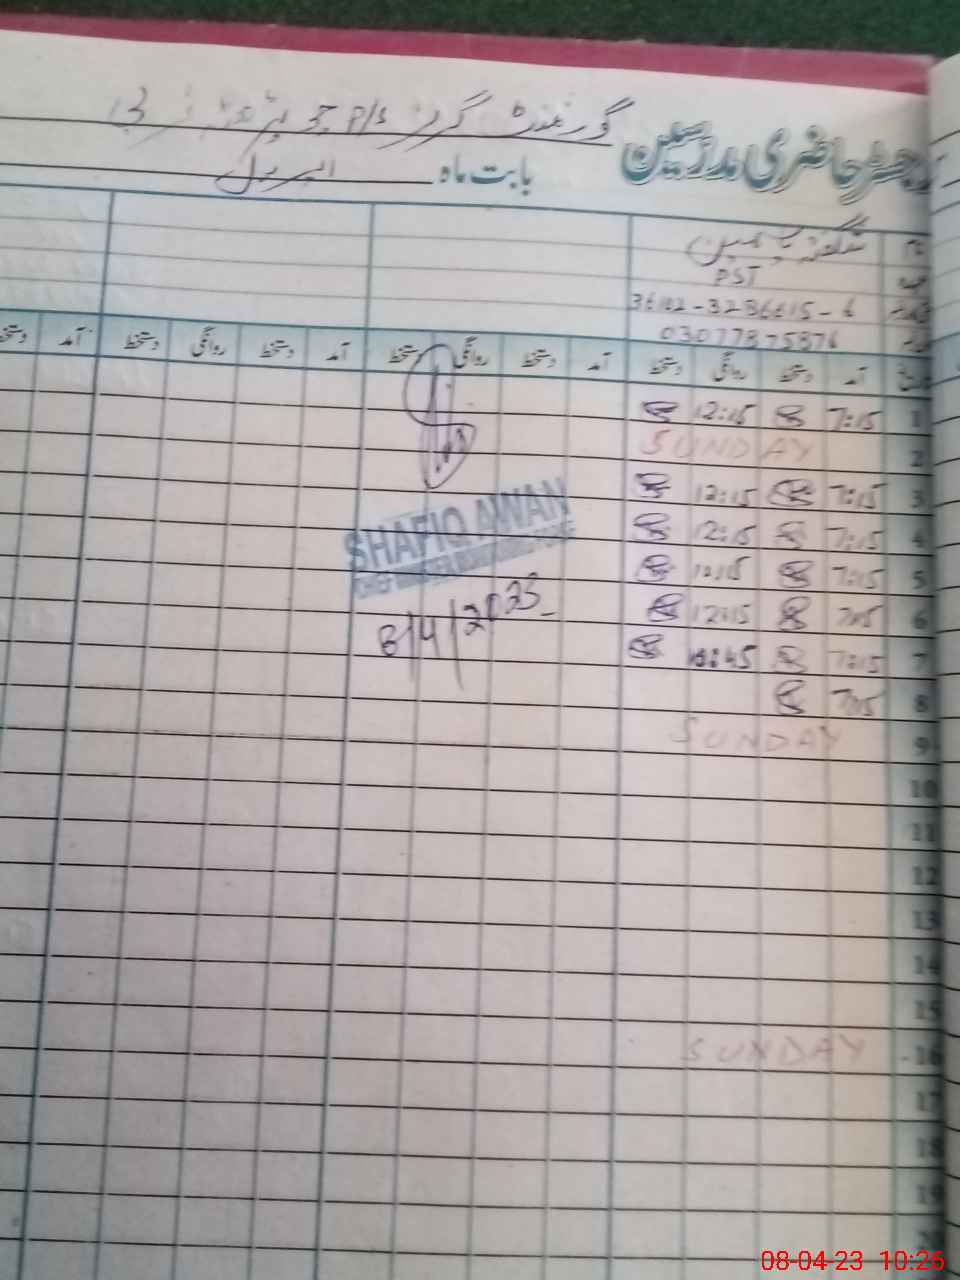 رجسٹر حاضری مدرسین گورنمنٹ گرلز P/S
بابت ماہ اپریل
نام شگفتہ یاسمین
عہدہ PST
36102-3286615-6
03077875876
تاریخ آمد دستخط روانگی دستخط آمد دستخط روانگی دستخط آمد دستخط روانگی دستخط آمد دستخط
1 7:15 12:15
2 SUNDAY
3 7:15 12:15
4 7:15 12:15
5 7:15 12:15
6 7:15 12:15
7 7:15
8 7:15
9 SUNDAY
10
11
12
13
14
15
16 SUNDAY
17
18
19
20
SHAFIQ AWAN
8/4/2023
08-04-23 10:26